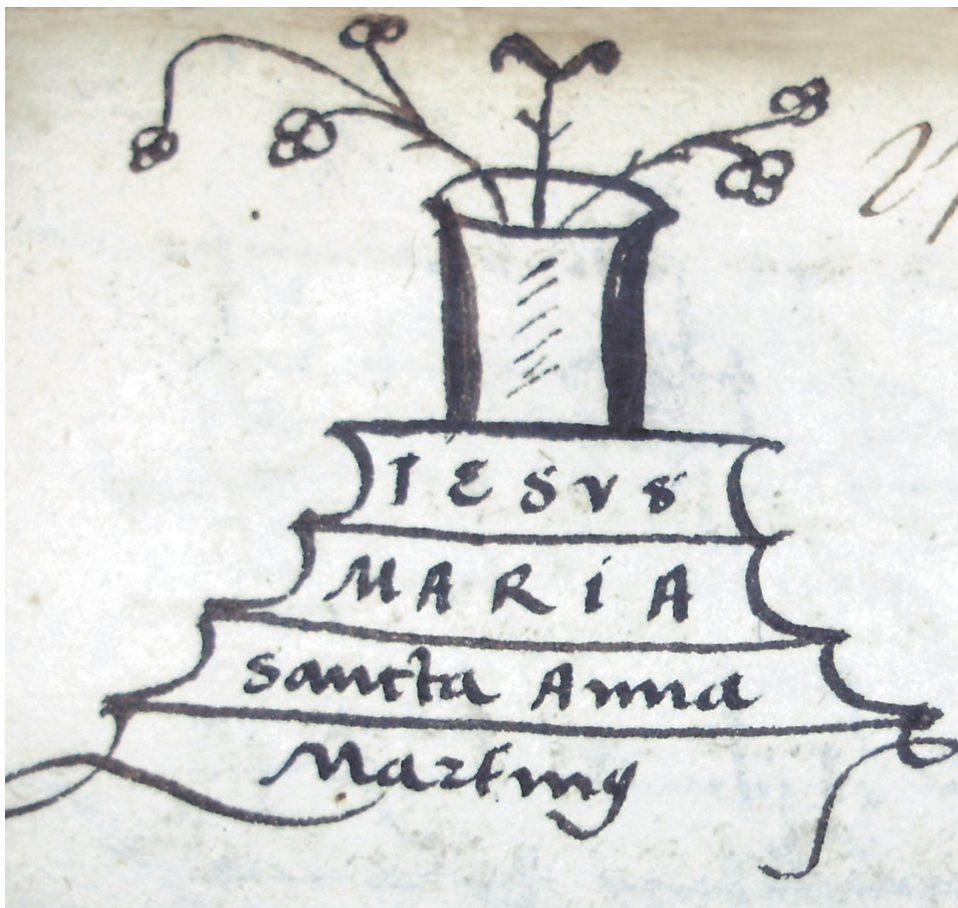 IESVS
MARiA
sancta Anna
Martiny